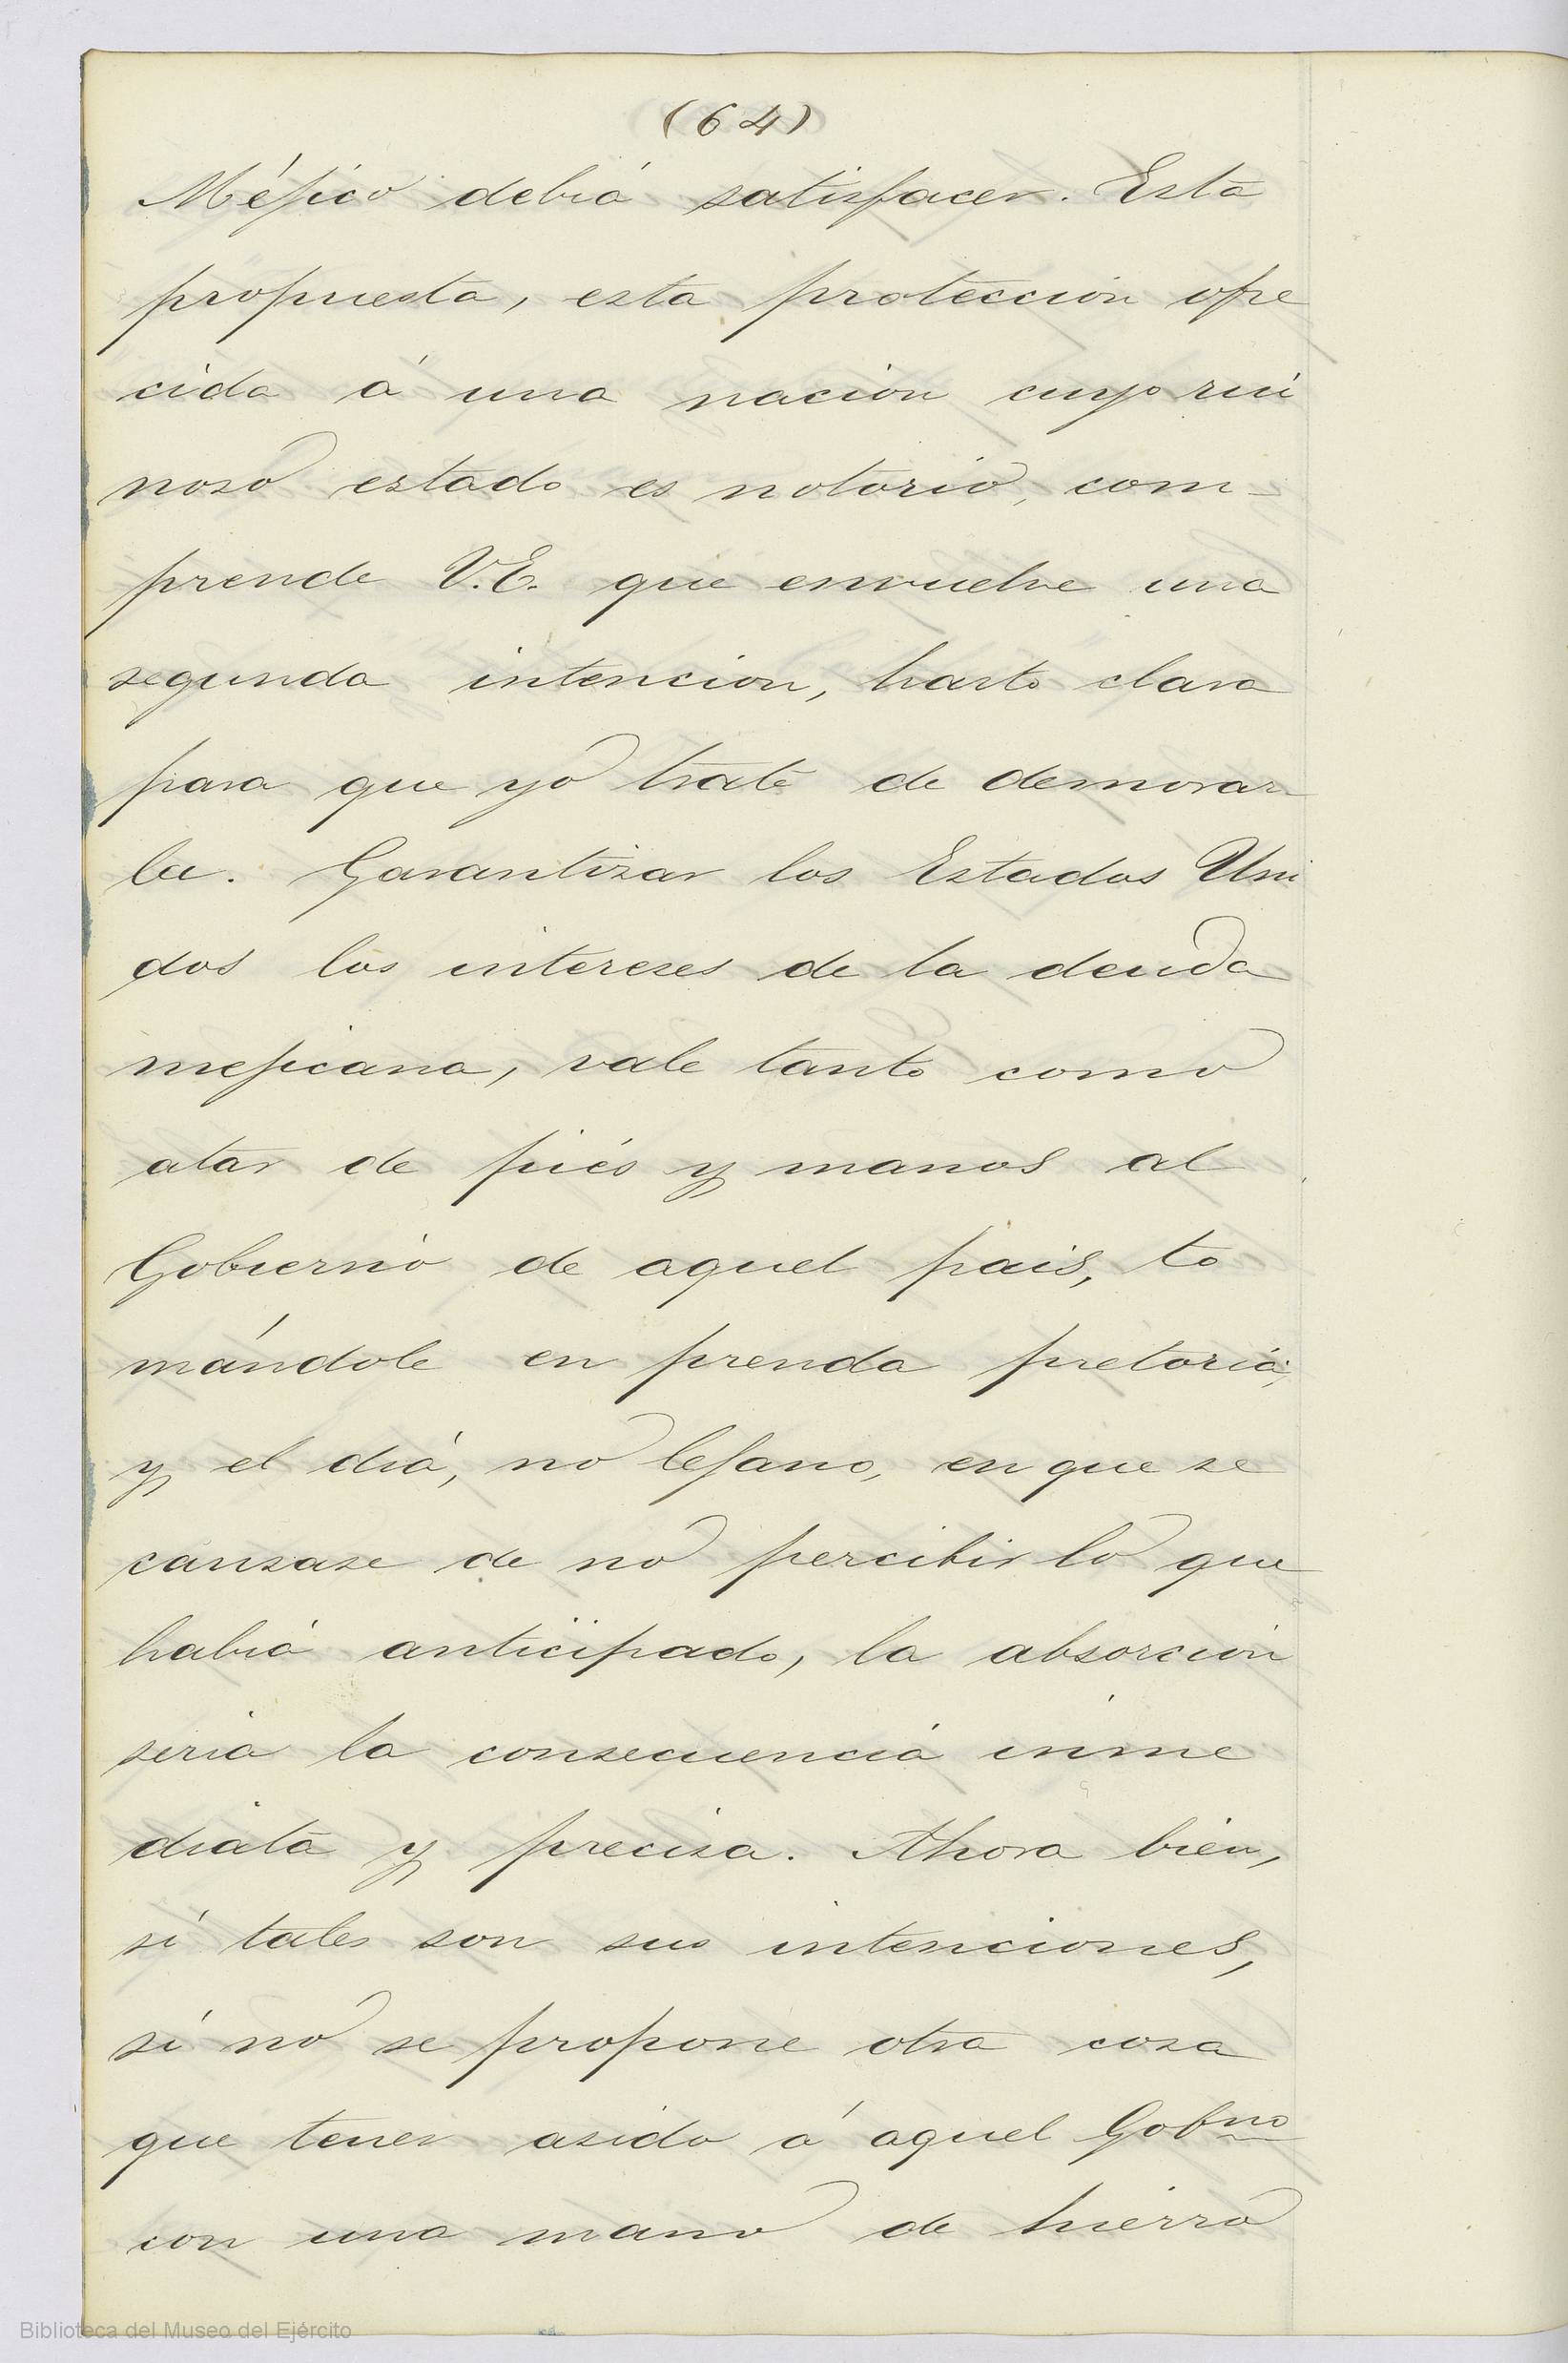 (64)
Méjico debiá satisfacer. Esta
propuesta, esta proteccion ofre
cida á una nacion cuyo rui
noso estado es notorio, com-
prende V.E. que envuelve una
segunda intencion, harto clara
para que yo trate de demorar
la. Garantizar los Estados Uni
dos los intereses de la deuda
mejicana, vale tanto como
atar de piés y manos al
Gobierno de aquel pais, to
mándole en prenda pretoria,
y el dia, no lejano, en que se
cansase de no percibir lo que
habia anticipado, la absorcion
seria la consecuencia inme
diata y precisa. Ahora bien,
si tales son sus intenciones,
si no se propone otra cosa
que tener asido á aquel Gobno
con una mano de hierro
Biblioteca del Museo del Ejército